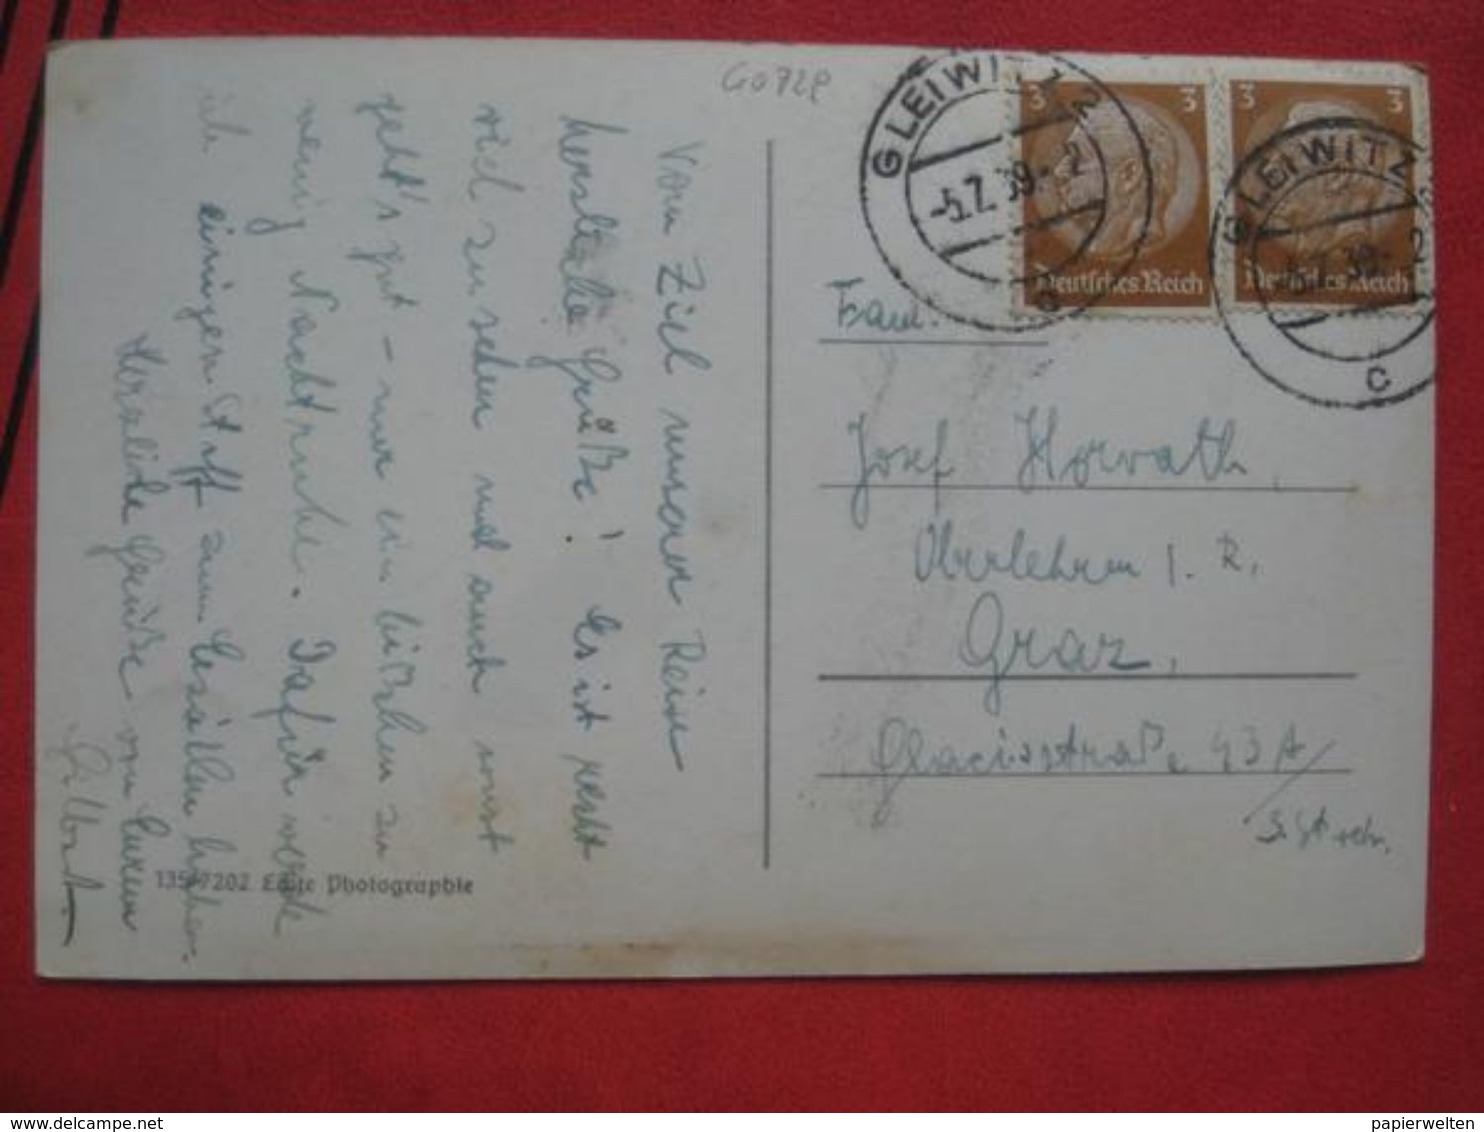 Go 728
GLEIWITZ 2
-5.7.39.-2
c
3 3
Deutsches Reich
GLEIWITZ 2
-5.7.39.-2
c
3 3
Deutsches Reich
Vom Ziel unserer Reise
herzliche Grüße! Es ist recht
viel zu sehen und auch sonst
geht's gut - nur ein bißchen zu
wenig Nachtruhe. Dafür werde
ich einigen Stoff zum Erzählen haben.
Herzliche Grüße von Eurem
Gilbert.
135/7202 Echte Photographie
Fam.
Josef Horvath,
Oberlehrer i. R.
Graz,
Glacisstraße 43 A/
3. St. re.
delcampe.net
papierwelten